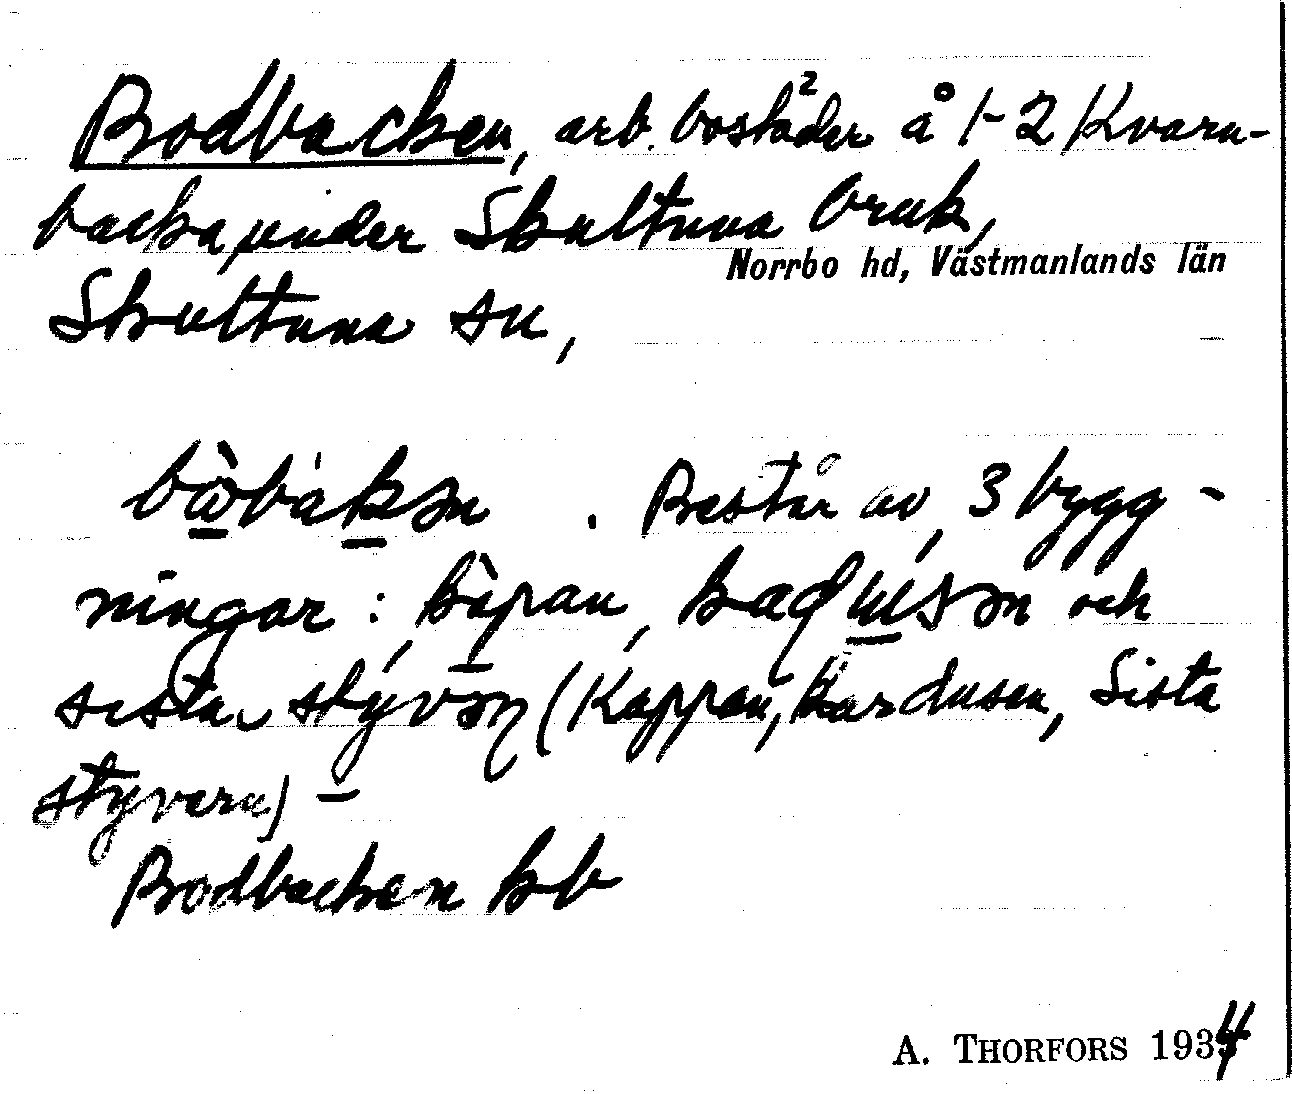 Bodbacken, arb. bostäder å 1-2 Kvarn-
backa, under Skultuna bruk,
Norrbo hd, Västmanlands län
Skultuna sn,
. Består av 3 bygg-
ningar: och
sista (Kappan, Kardusen, Sista
styvern) –
Bodbacken kb
A. THORFORS 1934